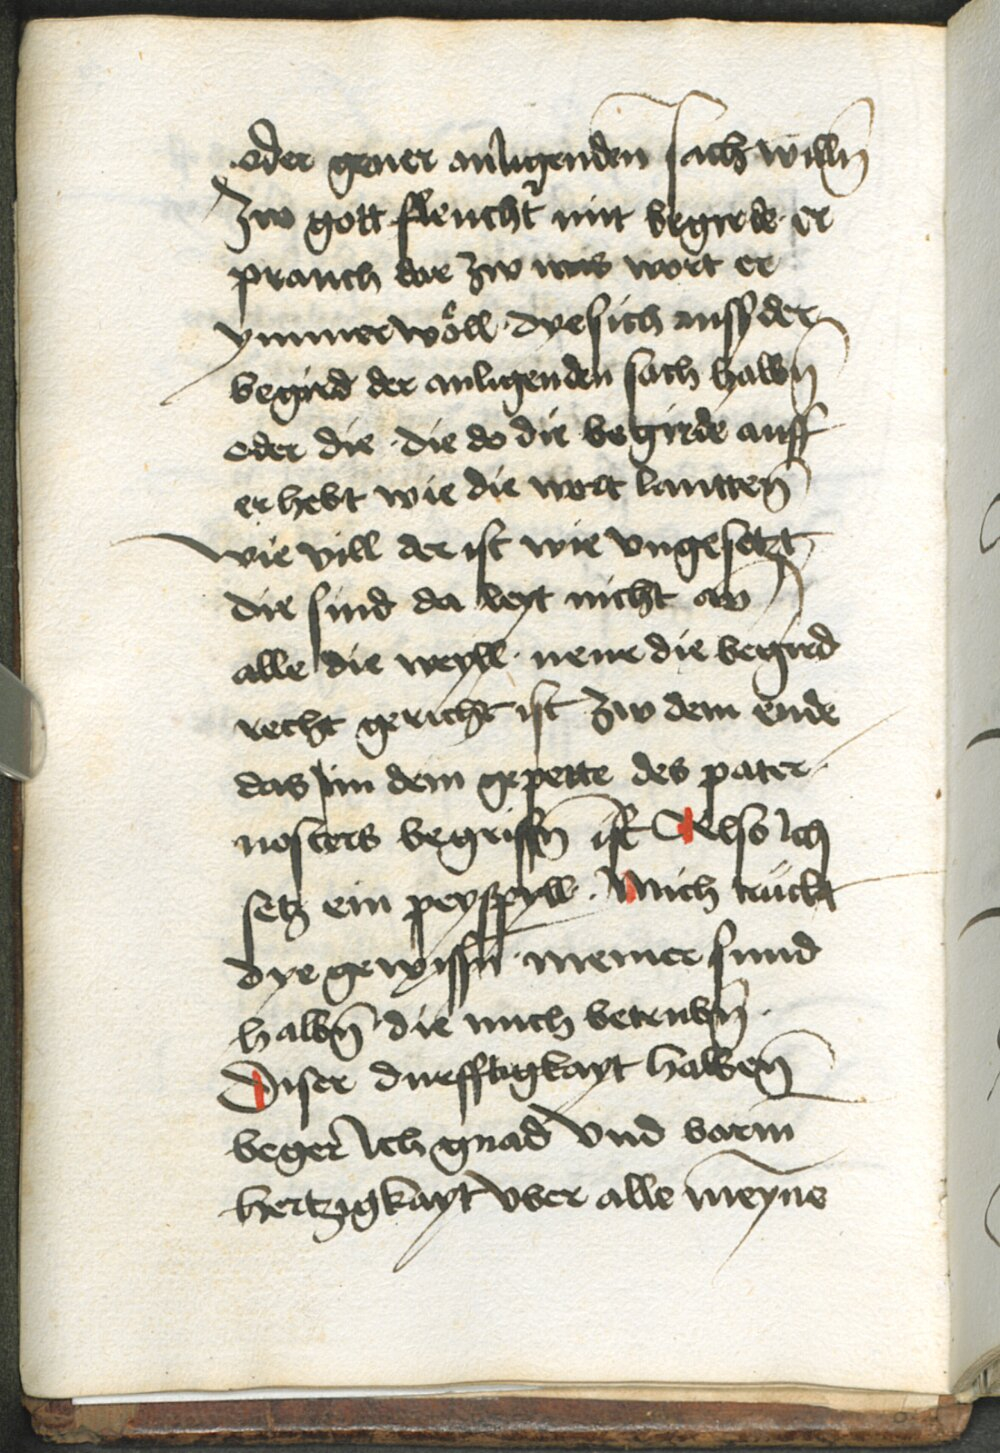 oder gener anligenden sach willn̄
Zw gott fleucht mit begirde er
prauch dar zw was wort er
ymmer wöll · dye sich auss der
begird der anligenden sach halbn̄
oder die · die do die begirde auff
er hebt wie die wort lauttenn̄
wie vill der ist wie vngesetzt
die sind da leyt nicht an
alle die weyll · neur die begird
recht gericht ist zw dem ende
das im dem gepette des pater
nosters begriffn̄ ist Also Ich
setz ein peyspyll · Mich truckt
dye gewissn̄ · meiner sund
halbn̄ die mich betrubn̄ ·
Diser durfftigkayt halbenn̄
beger Ich gnad vnd barm
hertzigkayt vber alle meyne